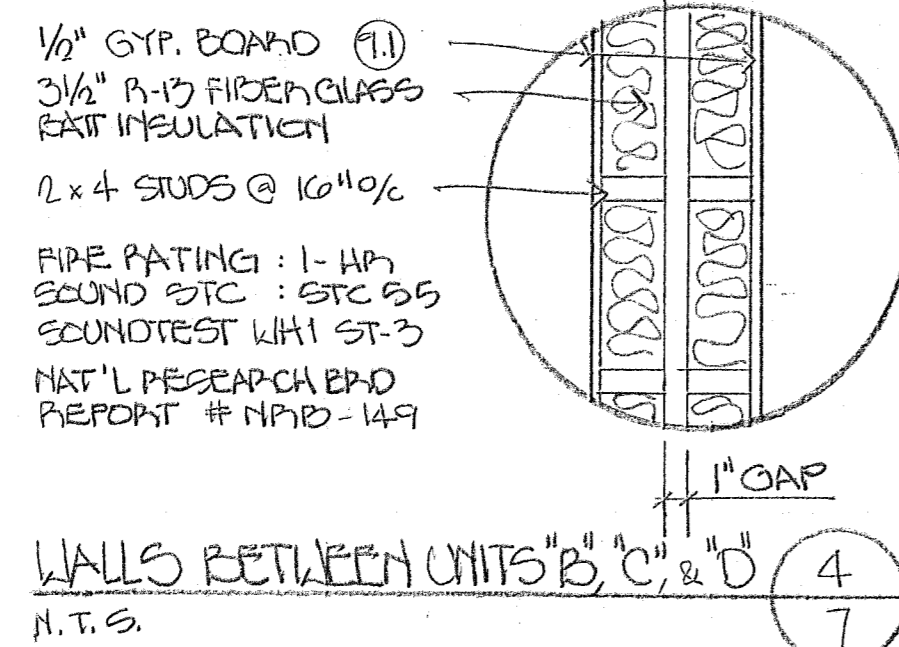 1/2" GYP. BOARD 9.1
3 1/2" R-13 FIBERGLASS
BATT INSULATION
2 x 4 STUDS @ 16" O/C
FIRE RATING : 1-HR
SOUND STC : STC 55
SOUNDTEST WHI ST-3
NAT'L RESEARCH BRD
REPORT # NRB-149
1" GAP
WALLS BETWEEN UNITS "B", "C", & "D" 4
N.T.S. 7